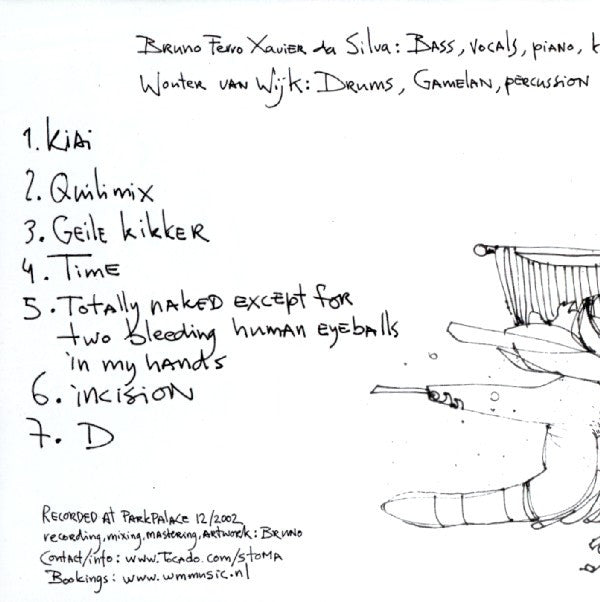 Bruno Ferro Xavier da Silva: Bass, vocals, piano,
Wouter van Wijk: Drums, Gamelan, percussion
1. Kiai
2. Quilimix
3. Geile kikker
4. Time
5. Totally naked except for
two bleeding human eyeballs
in my hands
6. incision
7. D
Recorded at Parkpalace 12/2002
recording, mixing, mastering, Artwork: Bruno
Contact/info: www.Tocado.com/stoma
Bookings: www.wmmusic.nl